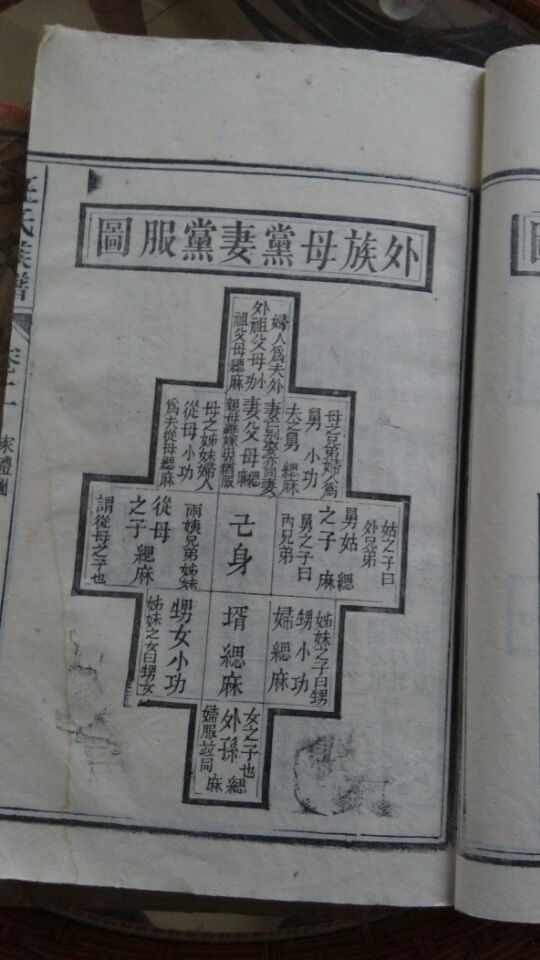 外族母黨妻黨服圖
婦人為夫外
外祖父母小功
祖父母緦麻
母之兄弟婦人為
舅小功
夫之舅緦麻
妻亡別娶亦同妻
妻父母緦麻
親母雖嫁出猶服
母之姊妹婦人
從母小功
為夫從母緦麻
姑之子曰
外兄弟
舅姑
之子緦麻
舅之子曰
內兄弟
己身
兩姨兄弟姊妹
從母
之子緦麻
謂從母之子也
姊妹之子曰甥
甥小功
婦緦麻
壻緦麻
甥女小功
姊妹之女曰甥女
女之子也
外孫緦麻
婦服並同
氏族譜
卷二
家禮圖